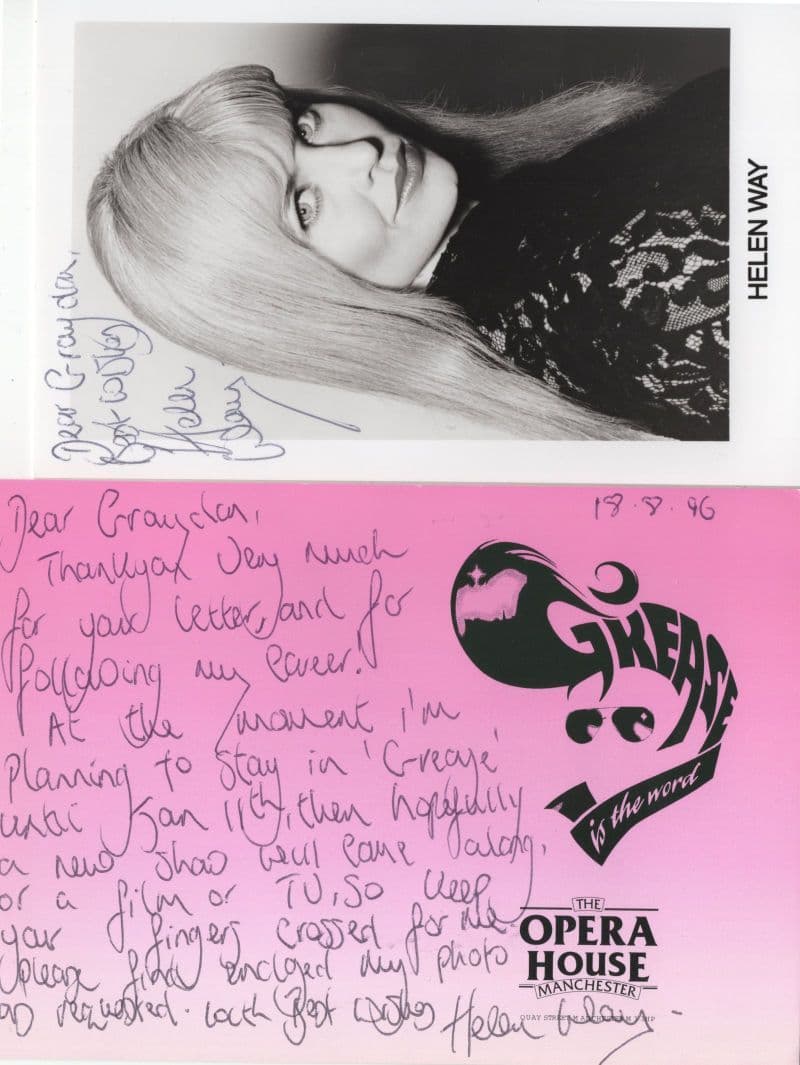 HELEN WAY
Dear Graydon,
Best wishes
Helen
Way
18.8.96
Dear Graydon,
Thankyou very much
for your letter, and for
following my career.
At the moment i'm
planning to stay in 'Grease'
until Jan 11th, then hopefully
a new show will come along,
or a film or TV, so keep
your fingers crossed for me.
please find enclosed my photo
as requested. with Best wishes
Helen Way.
GREASE
is the word
THE
OPERA
HOUSE
MANCHESTER
QUAY STREET MANCHESTER